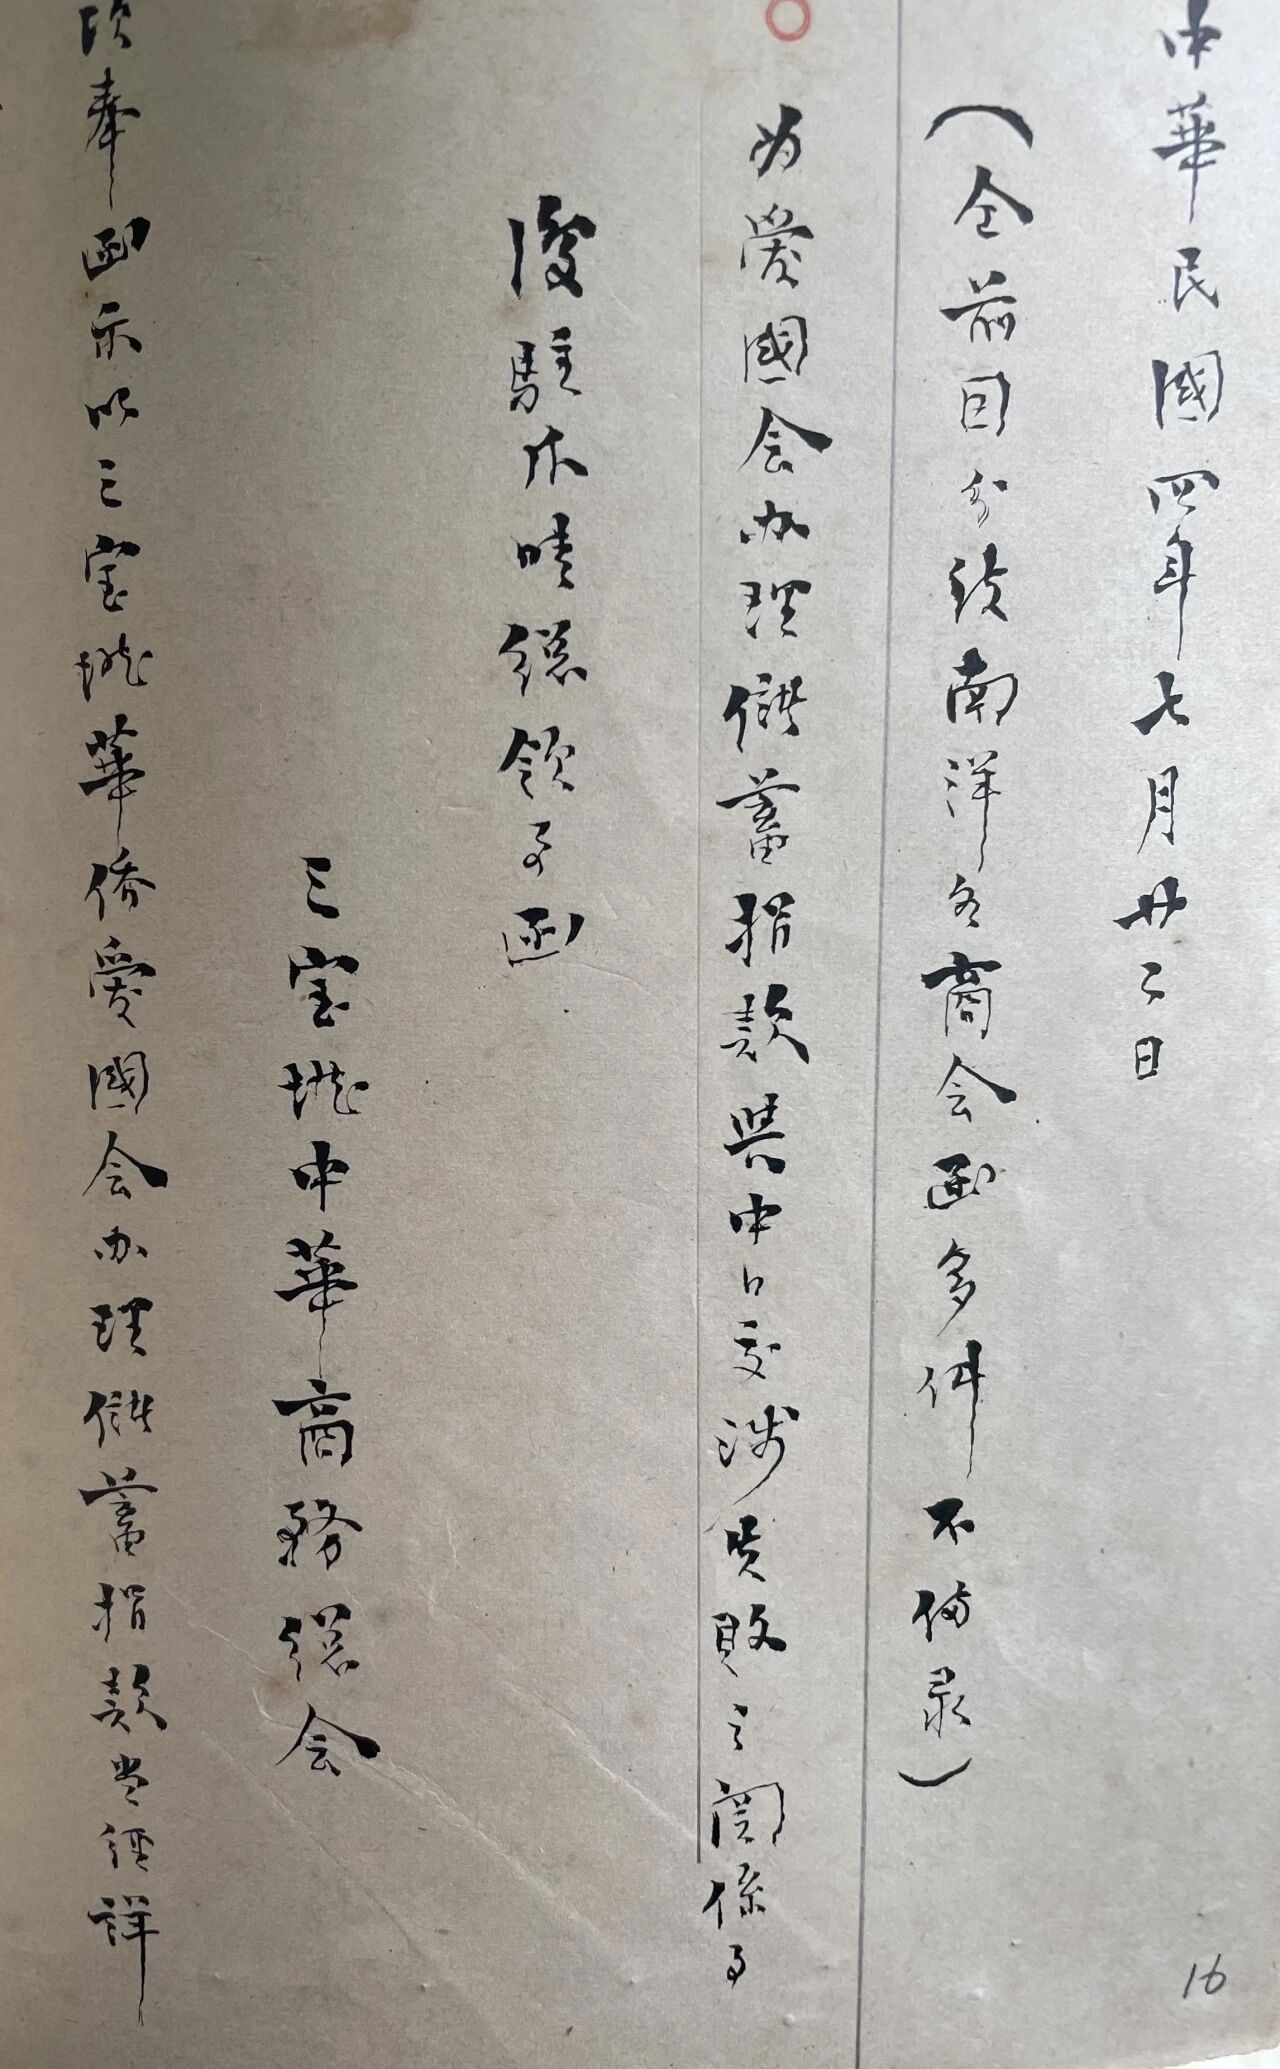 中華民國四年七月廿二日
（仝前因分致南洋各商会函多件不俻录）
为愛國会办理儲蓄捐款與中日交涉失敗之関係事
復駐爪哇總領事函
三宝垅中華商務總会
頃奉函示以三宝垅華僑愛國会办理儲蓄捐款嘗經詳
16